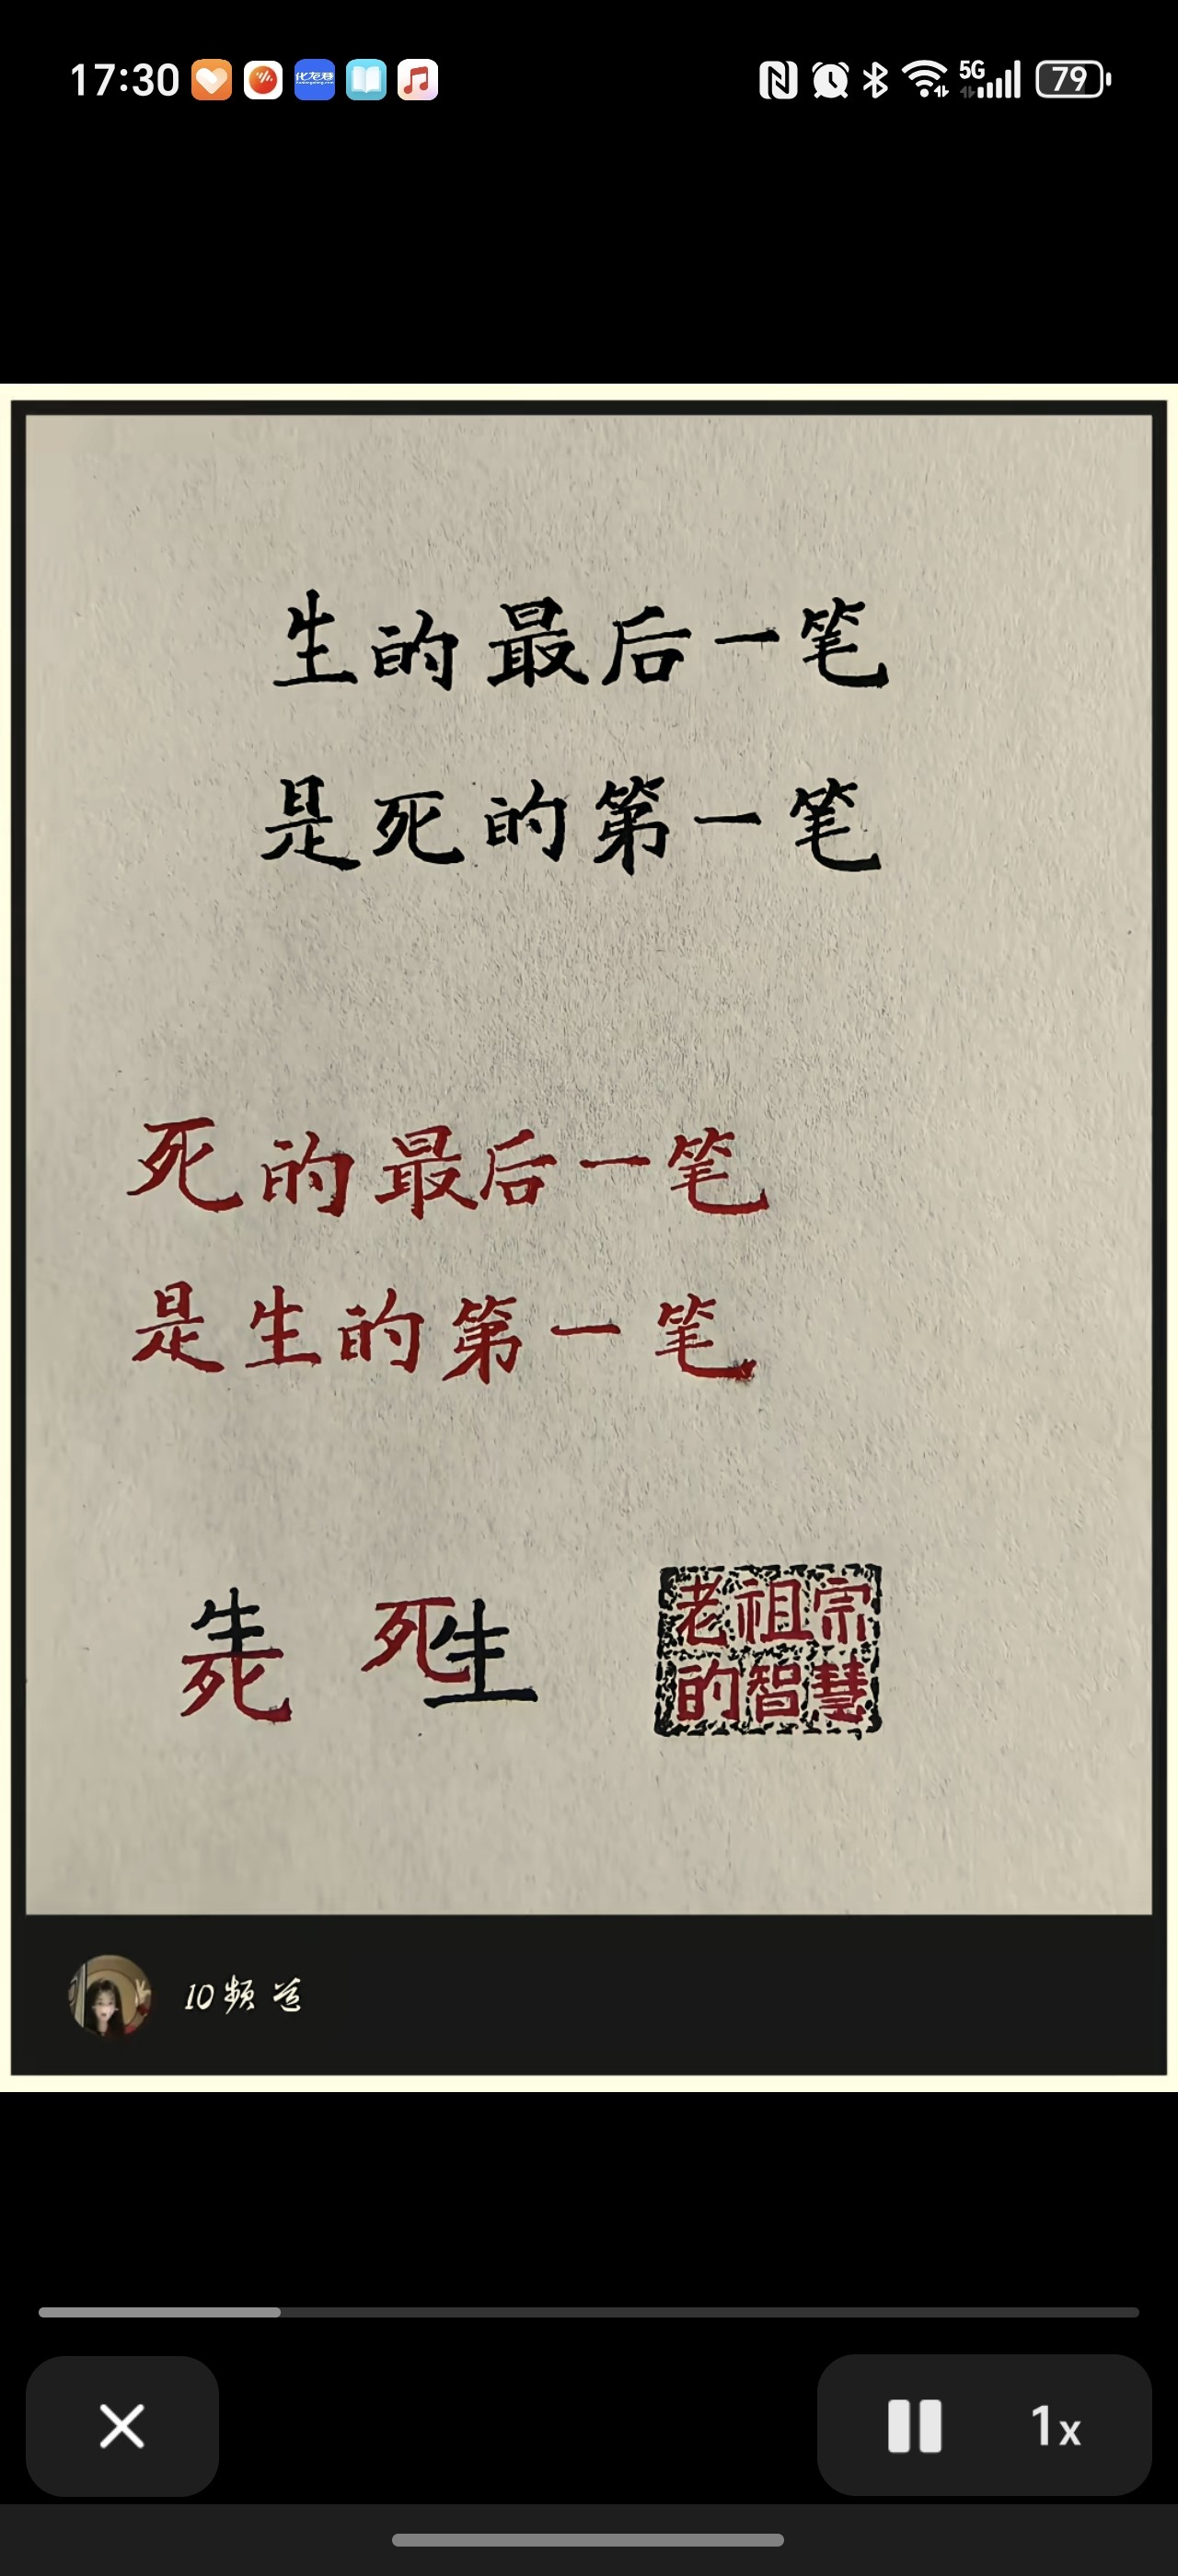 17:30
化龙巷
5G
79
生的最后一笔
是死的第一笔
死的最后一笔
是生的第一笔
生
死
死生
老祖宗
的智慧
10频道
1x